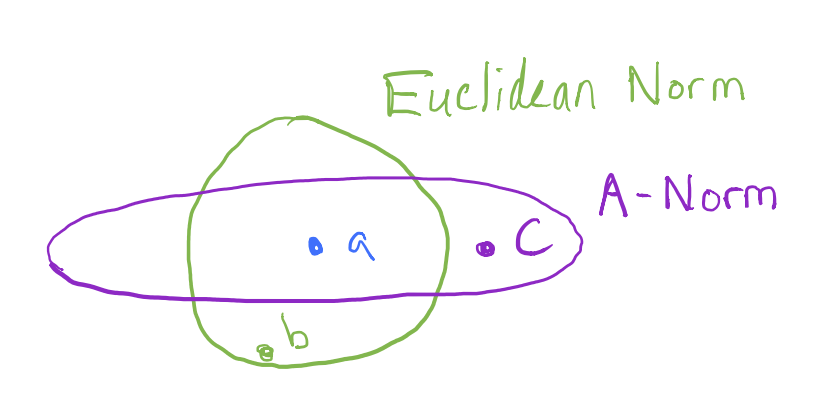 Euclidean Norm
A-Norm
a
C
b